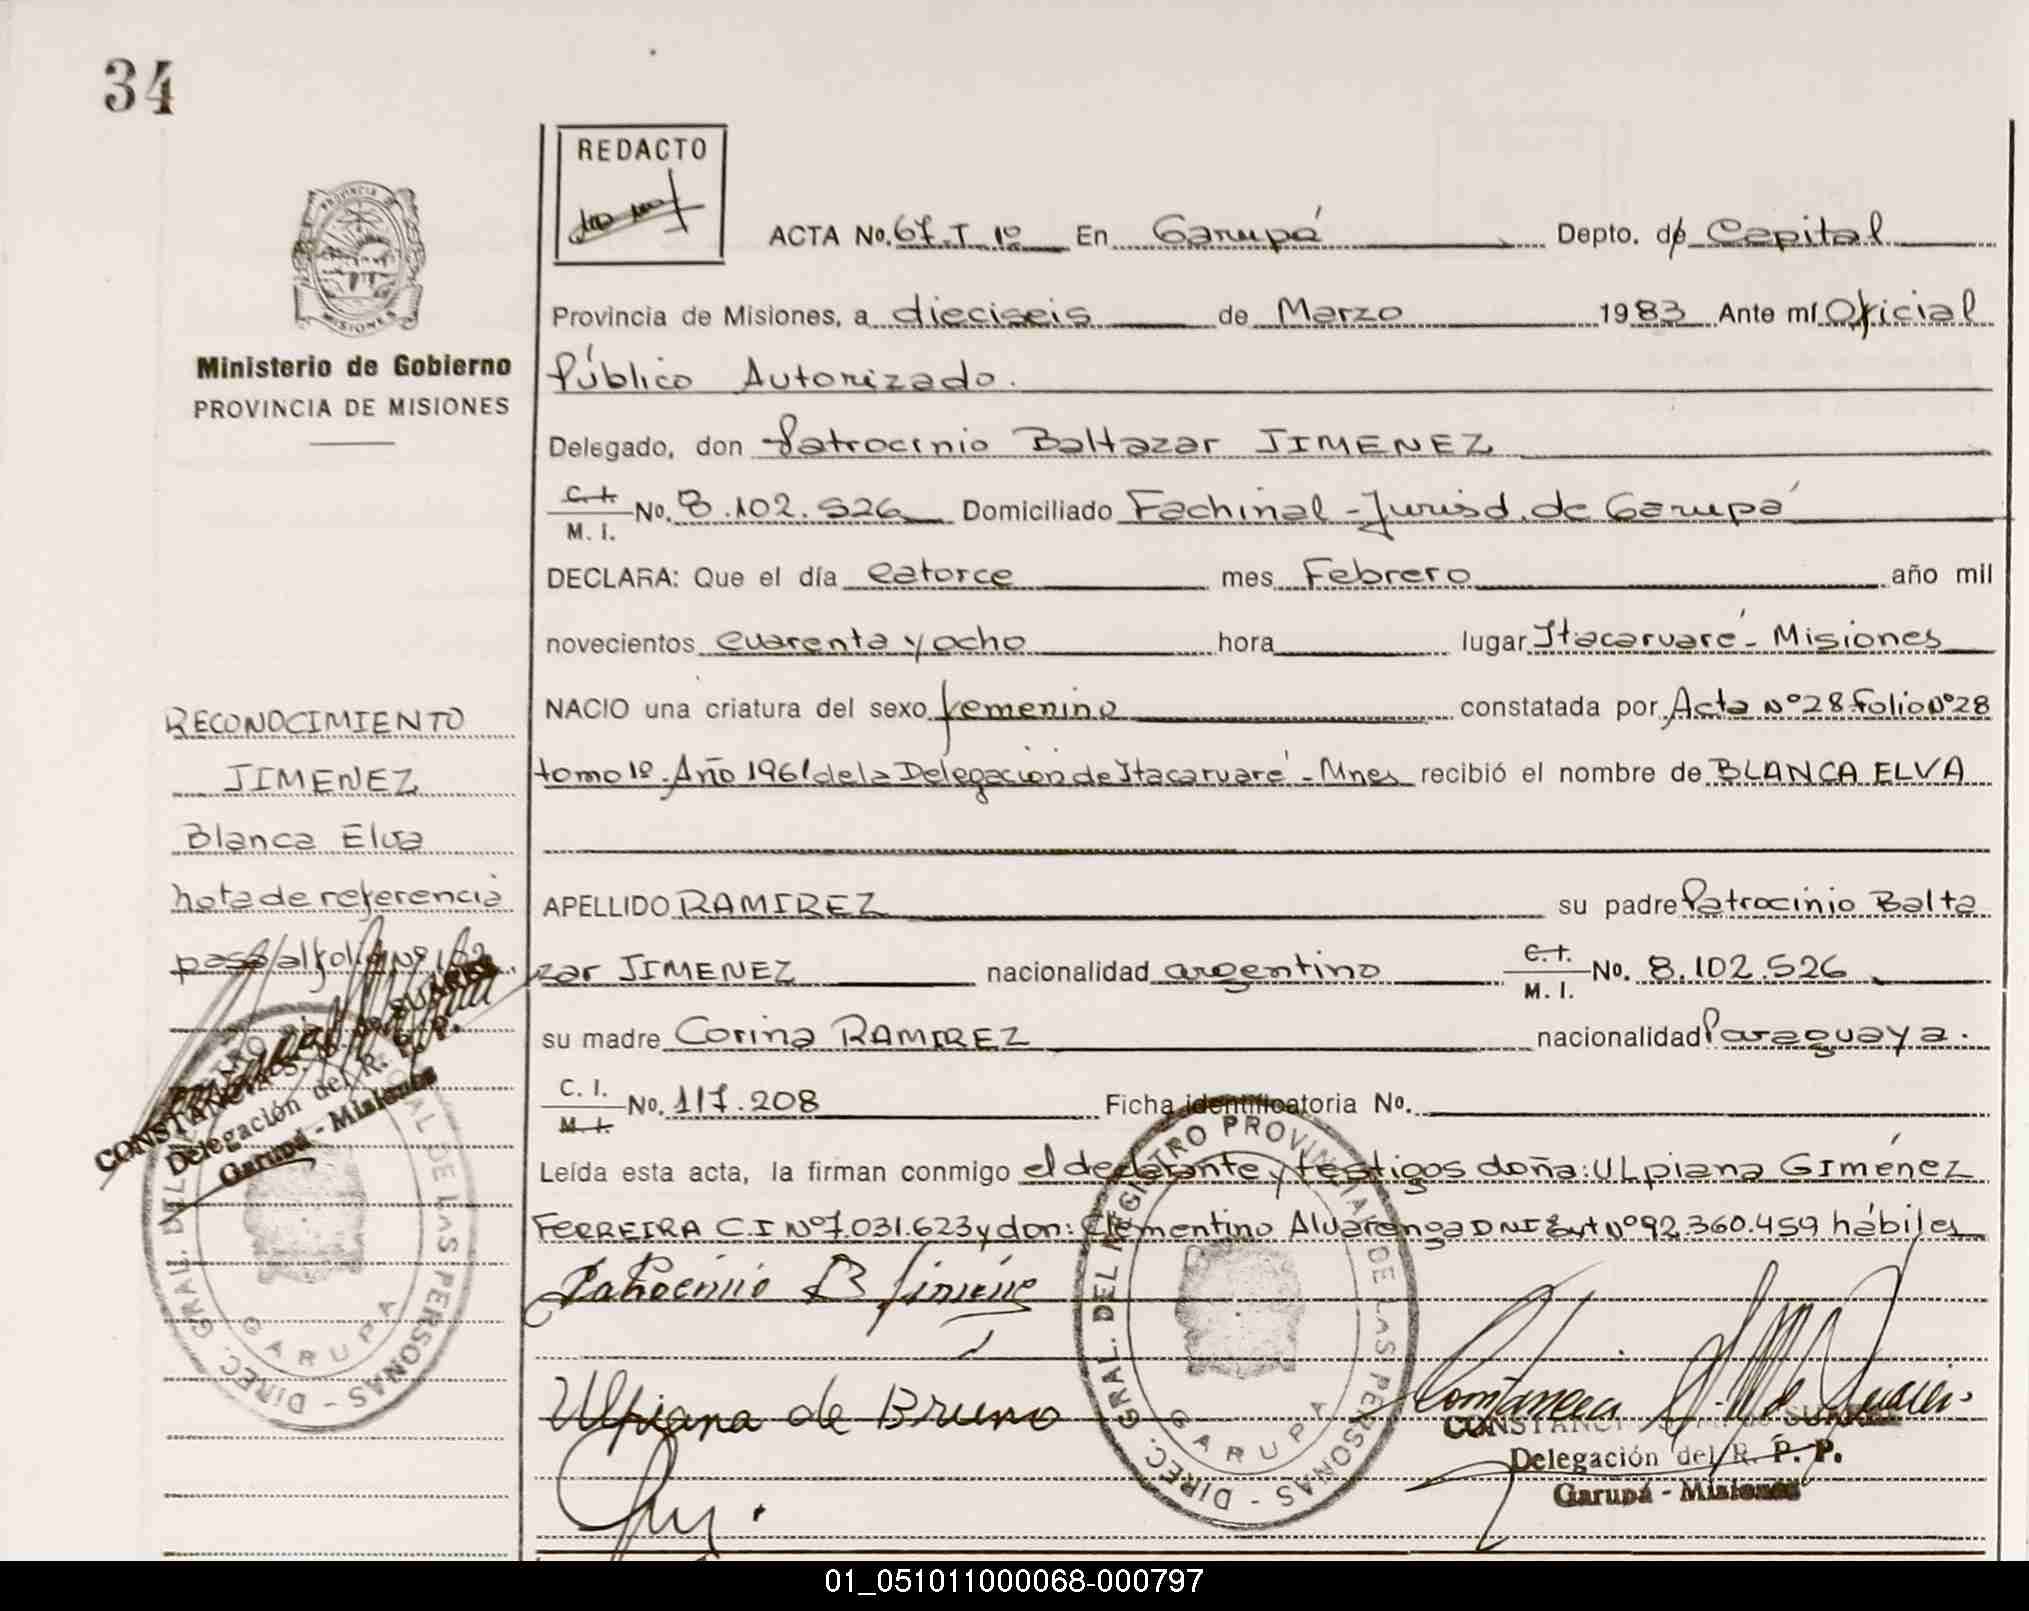 34
REDACTO
PROVINCIA D
MISIONES
Ministerio de Gobierno
PROVINCIA DE MISIONES
ACTA No. 67.T.1º En Garupá Depto. de Capital
Provincia de Misiones, a dieciseis de Marzo 1983 Ante mí Oficial
Público Autorizado.
Delegado, don Patrocinio Baltazar JIMENEZ
C. I.
M. I. No. 8.102.526 Domiciliado Fachinal - Jurisd. de Garupá
DECLARA: Que el día catorce mes Febrero año mil
novecientos cuarenta y ocho hora lugar Itacaruaré - Misiones
NACIO una criatura del sexo femenino constatada por Acta Nº28 folio Nº28
tomo 1º. Año 1961 de la Delegación de Itacaruaré - Mnes recibió el nombre de BLANCA ELVA
APELLIDO RAMIREZ su padre Patrocinio Balta
zar JIMENEZ nacionalidad argentino C. I. M. I. No. 8.102.526
su madre Corina RAMIREZ nacionalidad Paraguaya.
C. I.
M. I. No. 117.208 Ficha identificatoria No.
Leída esta acta, la firman conmigo el declarante y testigos doña: ULpiana GIménez
FERREIRA C.I Nº7.031.623 y don: Clementino Alvarenga DNI Ext Nº92.360.459 hábiles
RECONOCIMIENTO
JIMENEZ
Blanca Elva
nota de referencia
pasa al folio Nº
CONSTANCIA S. de SUAREZ
Delegación del R. P. P.
Garupá - Misiones
DIREC. GRAL. DEL REGISTRO PROVINCIAL DE LAS PERSONAS -
GARUPA
Patrocinio B Jiménez
Ulpiana de Bruno
DIREC. GRAL. DEL REGISTRO PROVINCIAL DE LAS PERSONAS -
GARUPA
Constancia S. de Suarez
CONSTANCI de SUAREZ
Delegación del R. P. P.
Garupá - Misiones
01_051011000068-000797